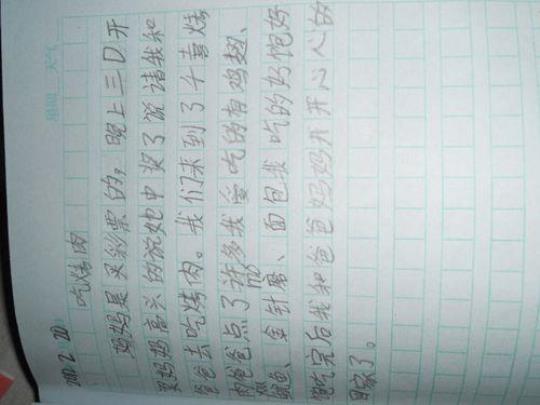 星期 天气
2.20
吃烤肉
妈妈是买彩票的，晚上三D开
妈妈高兴的说她中奖了说请我和
爸爸去吃烤肉。我们来到了千喜烤
肉爸爸点了许多我爱吃的有鸡翅、
鱿鱼、金针磨、面包我吃的好饱好
饱吃完后我和爸爸妈妈开开心心的
回家了。